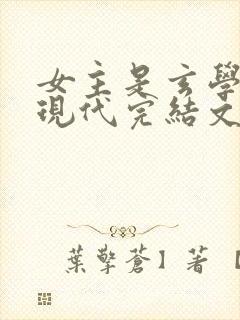 女主是玄學
現代完結文
葉擎蒼】著【